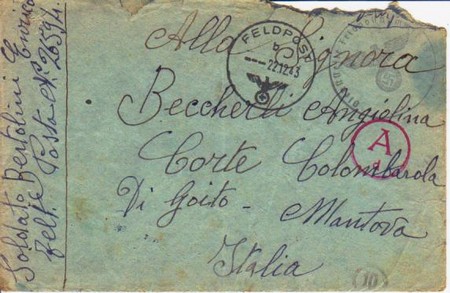 Alla Signora
Beccherli Angiolina
Corte Colombarola
Di Goito - Mantova
Italia
Soldato Bertolini Enrico
Posta N° 26571/A
FELDPOST
b
22.12.43
A